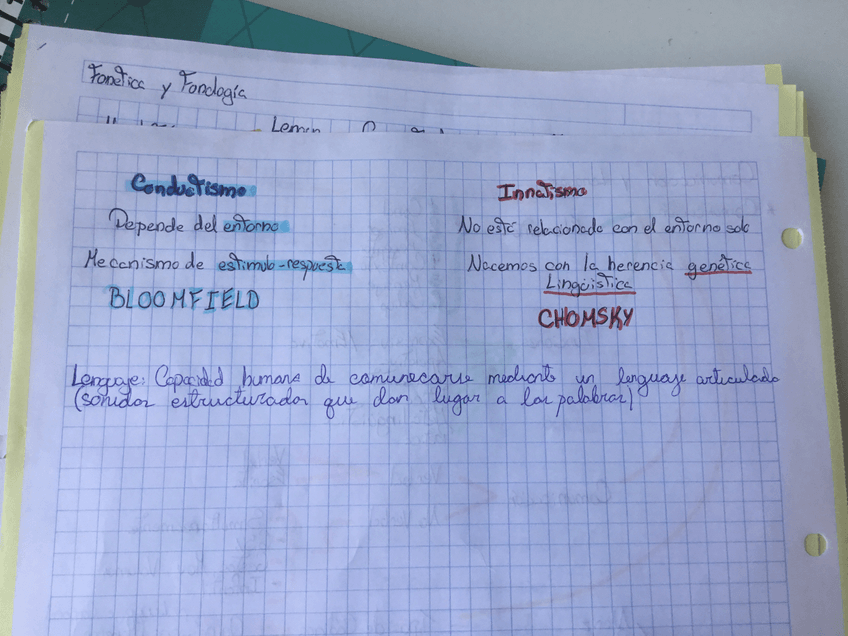 Fonética y Fonología
Conductismo
Depende del entorno
Mecanismo de estímulo-respuesta
BLOOMFIELD
Innatismo
No está relacionado con el entorno solo
Nacemos con la herencia genética
Lingüística
CHOMSKY
Lenguaje: Capacidad humana de comunicarse mediante un lenguaje articulado
(sonidos estructurados que dan lugar a las palabras)